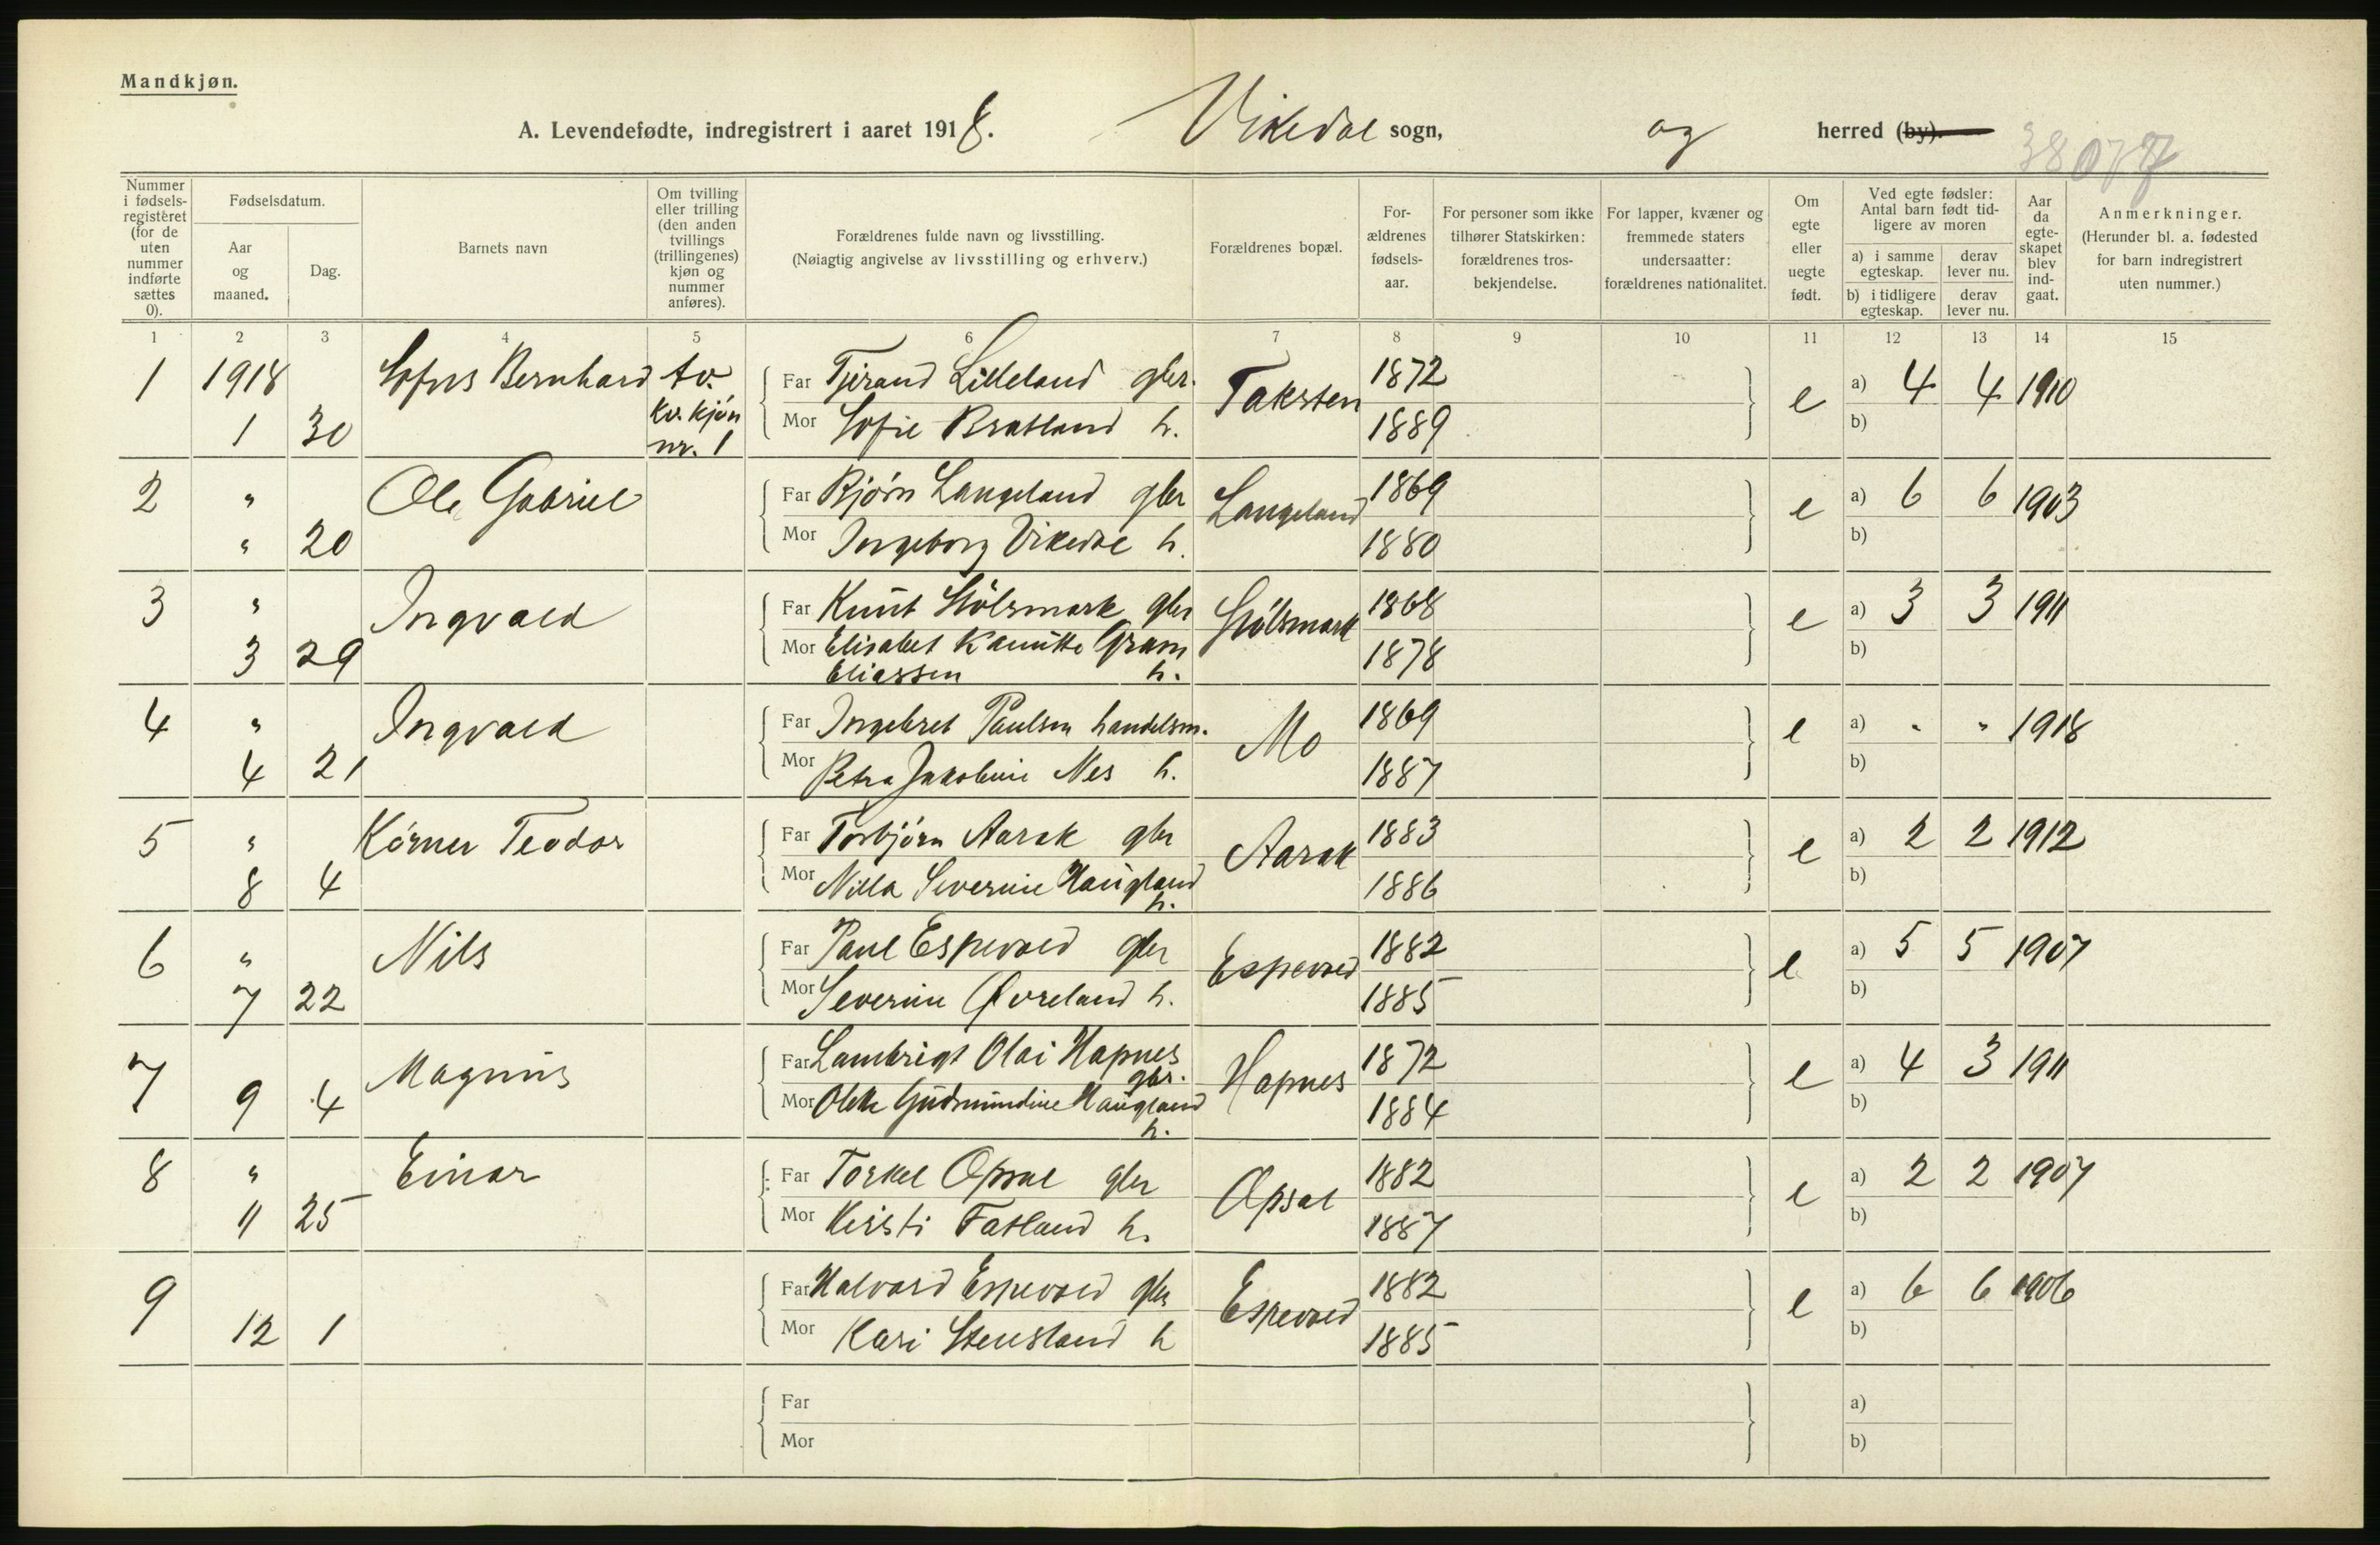 Mandkjøn.
A. Levendefødte, indregistrert i aaret 1918. Vikedal sogn, og herred (by).
38077
Nummer i fødselsregisteret (for de uten nummer indførte sættes 0).
Fødselsdatum.
Aar og maaned.
Dag.
Barnets navn
Om tvilling eller trilling (den anden tvillings (trillingenes) kjøn og nummer anføres).
Forældrenes fulde navn og livsstilling.
(Nøiagtig angivelse av livsstilling og erhverv.)
Forældrenes bopæl.
Forældrenes fødselsaar.
For personer som ikke tilhører Statskirken: forældrenes trosbekjendelse.
For lapper, kvæner og fremmede staters undersaatter: forældrenes nationalitet.
Om egte eller uegte født.
Ved egte fødsler: Antal barn født tidligere av moren
a) i samme egteskap. derav lever nu.
b) i tidligere egteskap. derav lever nu.
Aar da egteskapet blev indgaat.
Anmerkninger.
(Herunder bl. a. fødested for barn indregistrert uten nummer.)
1 2 3 4 5 6 7 8 9 10 11 12 13 14 15
1 1918 Sofus Bernhard tv. Far Tjerand Lilleland gbr. Taksten 1872 e a) 4 4 1910
1 30 kv. kjøn nr. 1 Mor Sofie Bratland h. 1889 b)
2 " Ole Gabriel Far Bjørn Langeland gbr Langeland 1869 e a) 6 6 1903
" 20 Mor Ingeborg Vikedal h. 1880 b)
3 " Ingvald Far Knut Stølsmark gbr Stølsmark 1868 e a) 3 3 1911
3 29 Mor Elisabet Kamitte Gram 1878 b)
Eliassen h.
4 " Ingvald Far Ingebret Paulsen handelsm. Mo 1869 e a) " " 1918
4 21 Mor Petra Jakobine Nes h. 1887 b)
5 " Körner Teodor Far Torbjørn Aarak gbr Aarak 1883 e a) 2 2 1912
8 4 Mor Nilla Severine Haugland h. 1886 b)
6 " Nils Far Paul Espevold gbr Espevold 1882 e a) 5 5 1907
7 22 Mor Severine Øvreland h. 1885 b)
7 Magnus Far Lambrigt Olai Hapnes gbr. Hapnes 1872 e a) 4 3 1911
9 4 Mor Olete Gudmundine Haugland h. 1884 b)
8 " Einar Far Torkel Opsal gbr Opsal 1882 e a) 2 2 1907
11 25 Mor Kirsti Fatland h. 1887 b)
9 Far Halvard Espevold gbr Espevold 1882 e a) 6 6 1906
12 1 Mor Kari Stensland h 1885 b)
Far a)
Mor b)